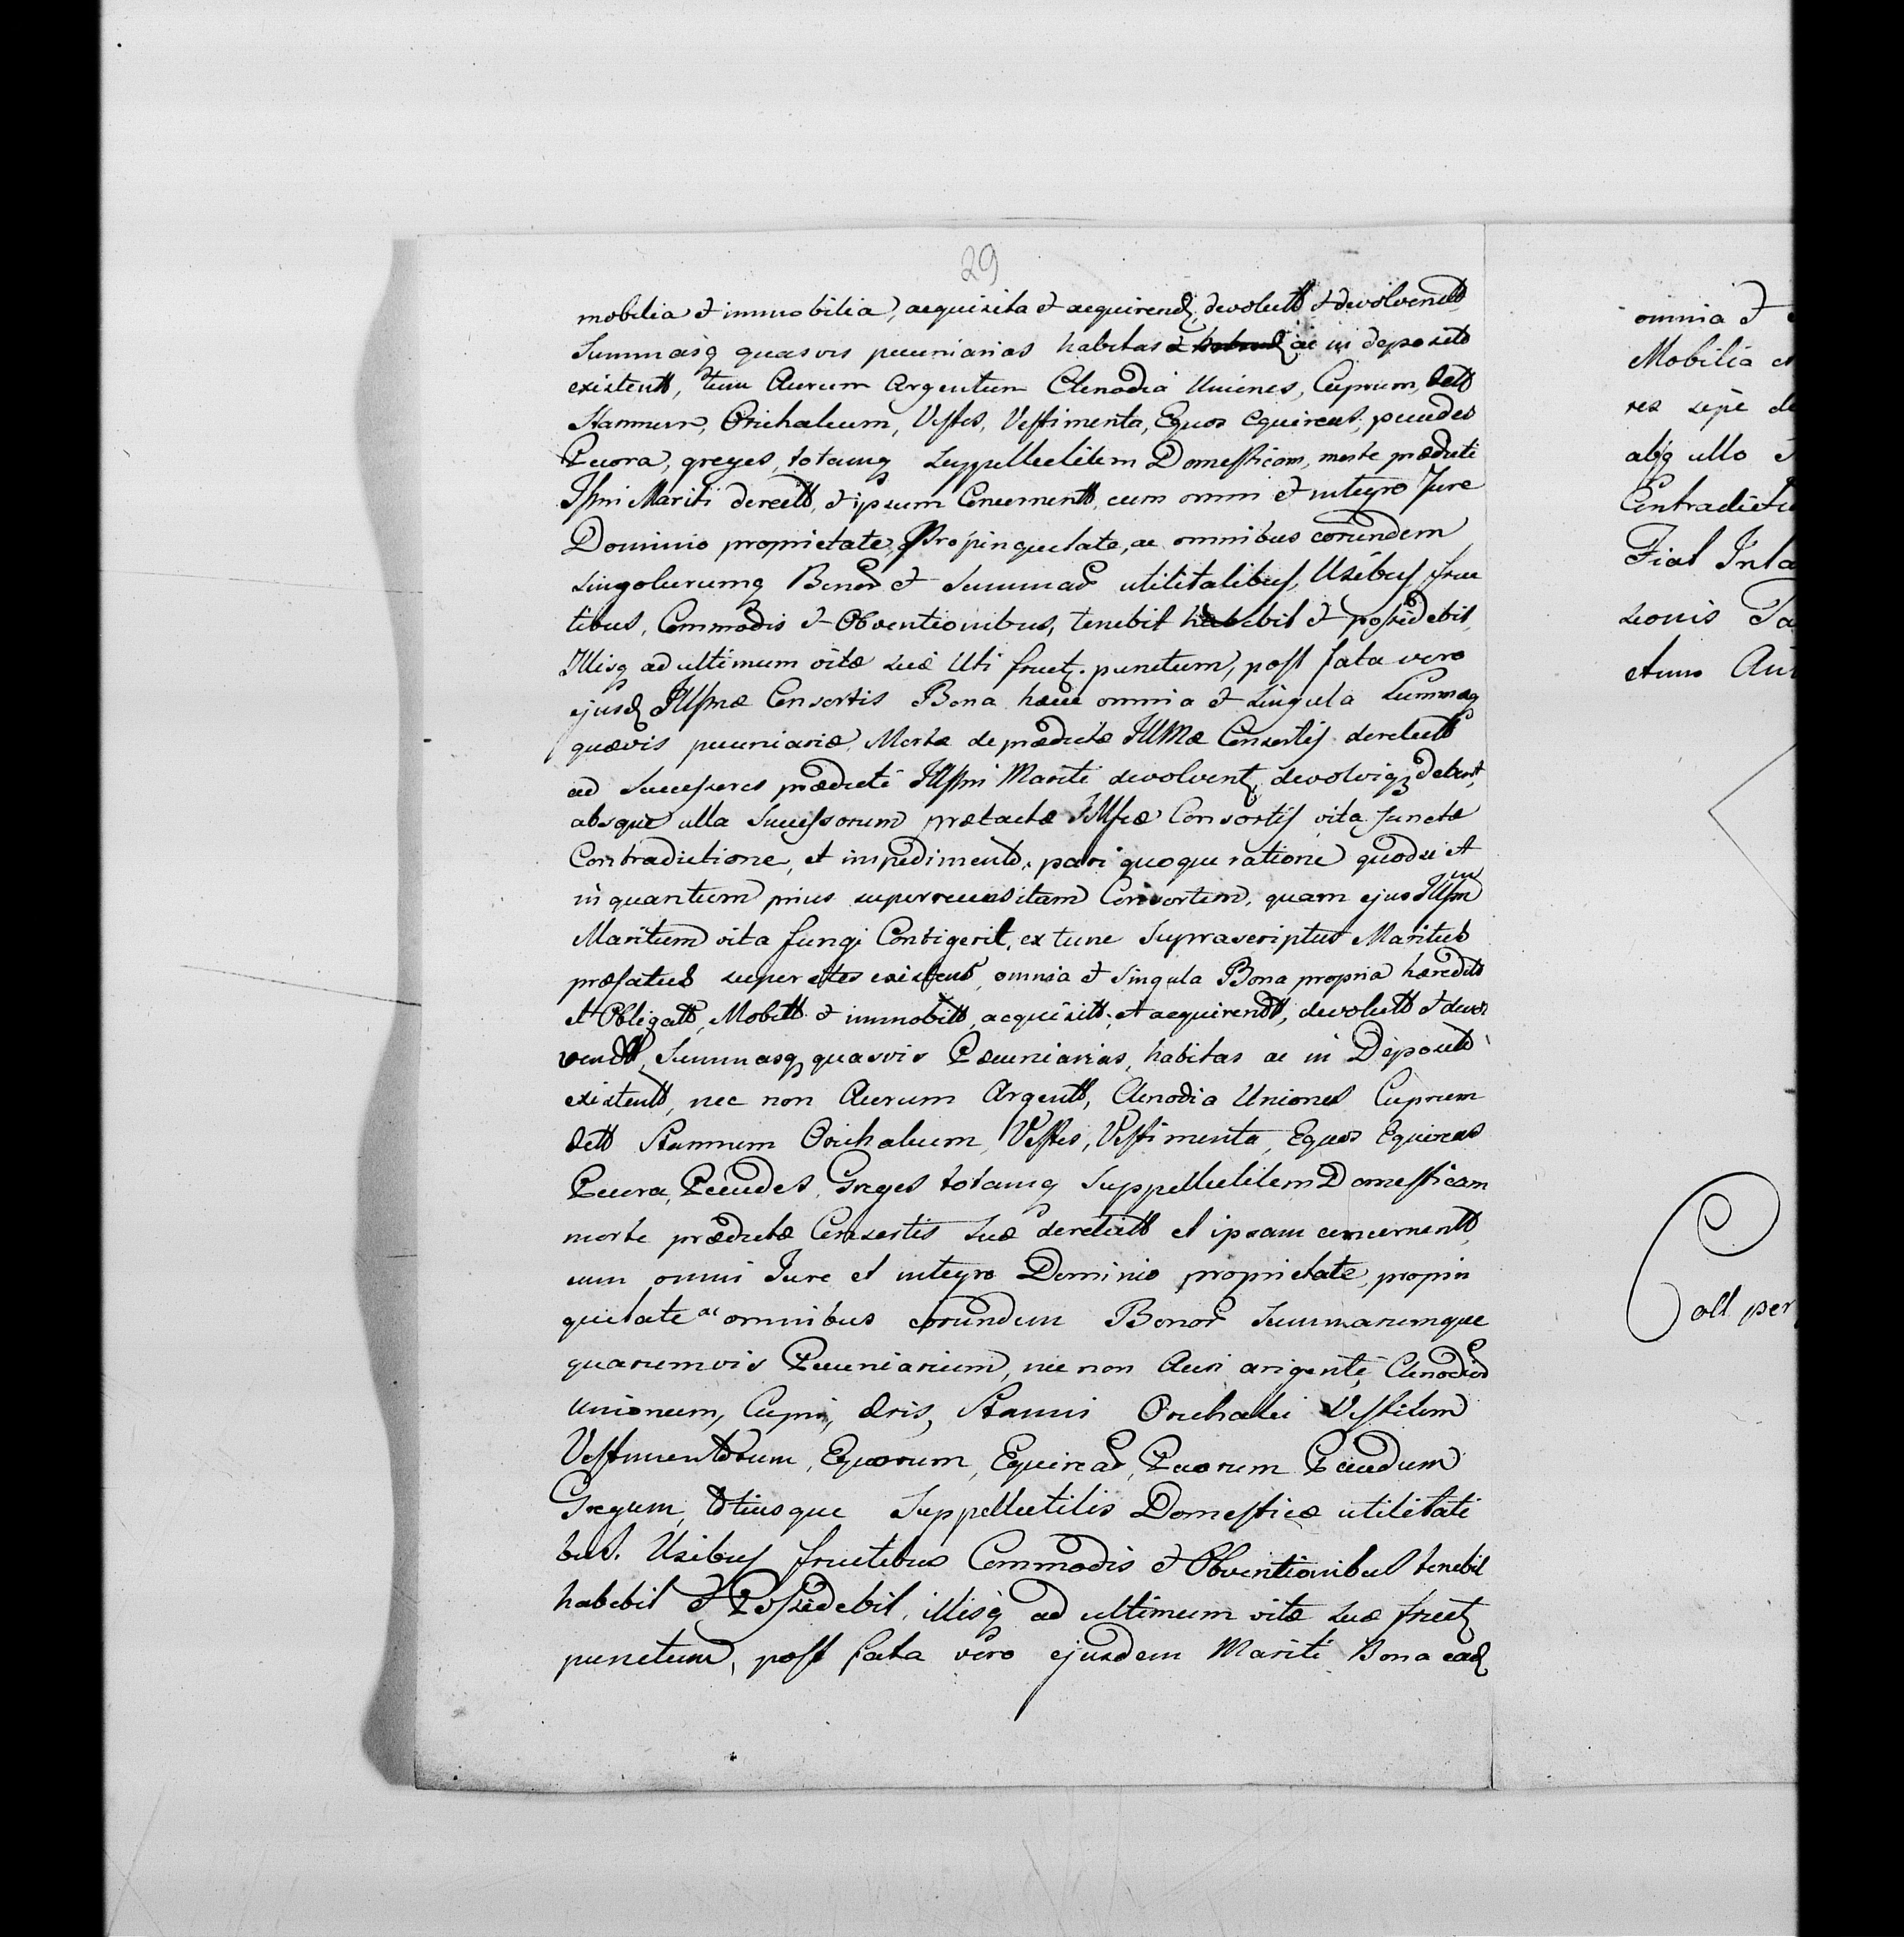 29
mobilia et immobilia, acquisita et acquirend, devolutt et devolventt
Summasq quasvis pecuniarias habitas ac in deposito
existentt, tum Aurum Argentum Clenodia Uniones, Cuprum,
Stannum, Orichalcum, Vestes, Vestimenta, Equos Equireas, pecudes
Pecora, greges, totamq Suppellectilem Domesticam, morte prædicti
Illsmi Mariti derectt, et ipsum Concernentt, cum omni et integro Jure
Dominio proprietate, Propinquitate, ac omnibus eorundem
singolurumq Bonor et Summar utilitatibus, Usibus, fruc
tibus, Commodis et Obventionibus, tenebit habebit et possidebit,
Illisq ad ultimum vitæ suæ Uti fruet. punctum, post fata vero
ejusd Illsmæ Consortis Bona hæcce omnia et singula Summæq
quævis pecuniariæ, Morte de prædictæ IllMæ Consortis derelictt
ad Successores prædicti Illsmi Mariti devolvent, devolviq debent,
absque ulla Successorum prætactæ Consortis vita functæ
Contradictione, et impedimento, pari quoque ratione quod si et
in quantum prius superrecensitam Consortem, quam ejus Illsmum
Maritum vita fungi Contigerit, ex tunc Suprascriptus Maritus
præfatus superstes existens, omnia et singula Bona propria hæredit
et Obligatt, Mobilt et immobilt, acquisitt, et acquirendt, devolutt et devol
vendt, Summasq quasvis Pecuniarias, habitas ac in Deposito
existentt, nec non Aurum Argentt, Clenodia Uniones Cuprum
Stannum Orichalcum, Vestes, Vestimenta, Equos Equireas
Pecora, Pecudes, Greges totamq Suppellectilem Domesticam
morte prædictæ Consortis suæ derelictt et ipsam concernentt,
cum omni Jure et integro Dominio proprietate, propin
quitate ac omnibus eorundem Bonor Summarumque
quarumvis Pecuniarium, nec non Auri arigenti, Clenodior
unionum, Cupri, Æris, Stanni Orichalci Vestium
Vestimentorum, Equorum, Equirear, Pecorum Pecudum
Gregum, totiusque Suppellectilis Domesticæ utilitati
bus. Usibus fructibus Commodis et Obventionibus tenebit
habebit et Possidebit, illisq ad ultimum vitæ suæ fruet
punctum, post fata vero ejusdem Mariti Bona ead
omnia et
Mobilia et
res sepe de
absq ullo
Contradictio
Fiat Inta
sionis
ctum
Coll per